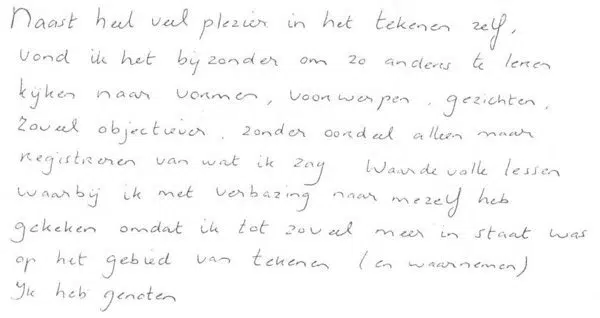 Naast heel veel plezier in het tekenen zelf,
vond ik het bijzonder om zo anders te leren
kijken naar vormen, voorwerpen, gezichten,
Zoveel objectiever, zonder oordeel alleen maar
registreren van wat ik zag Waardevolle lessen
waarbij ik met verbazing naar mezelf heb
gekeken omdat ik tot zoveel meer in staat was
op het gebied van tekenen (en waarnemen)
Ik heb genoten